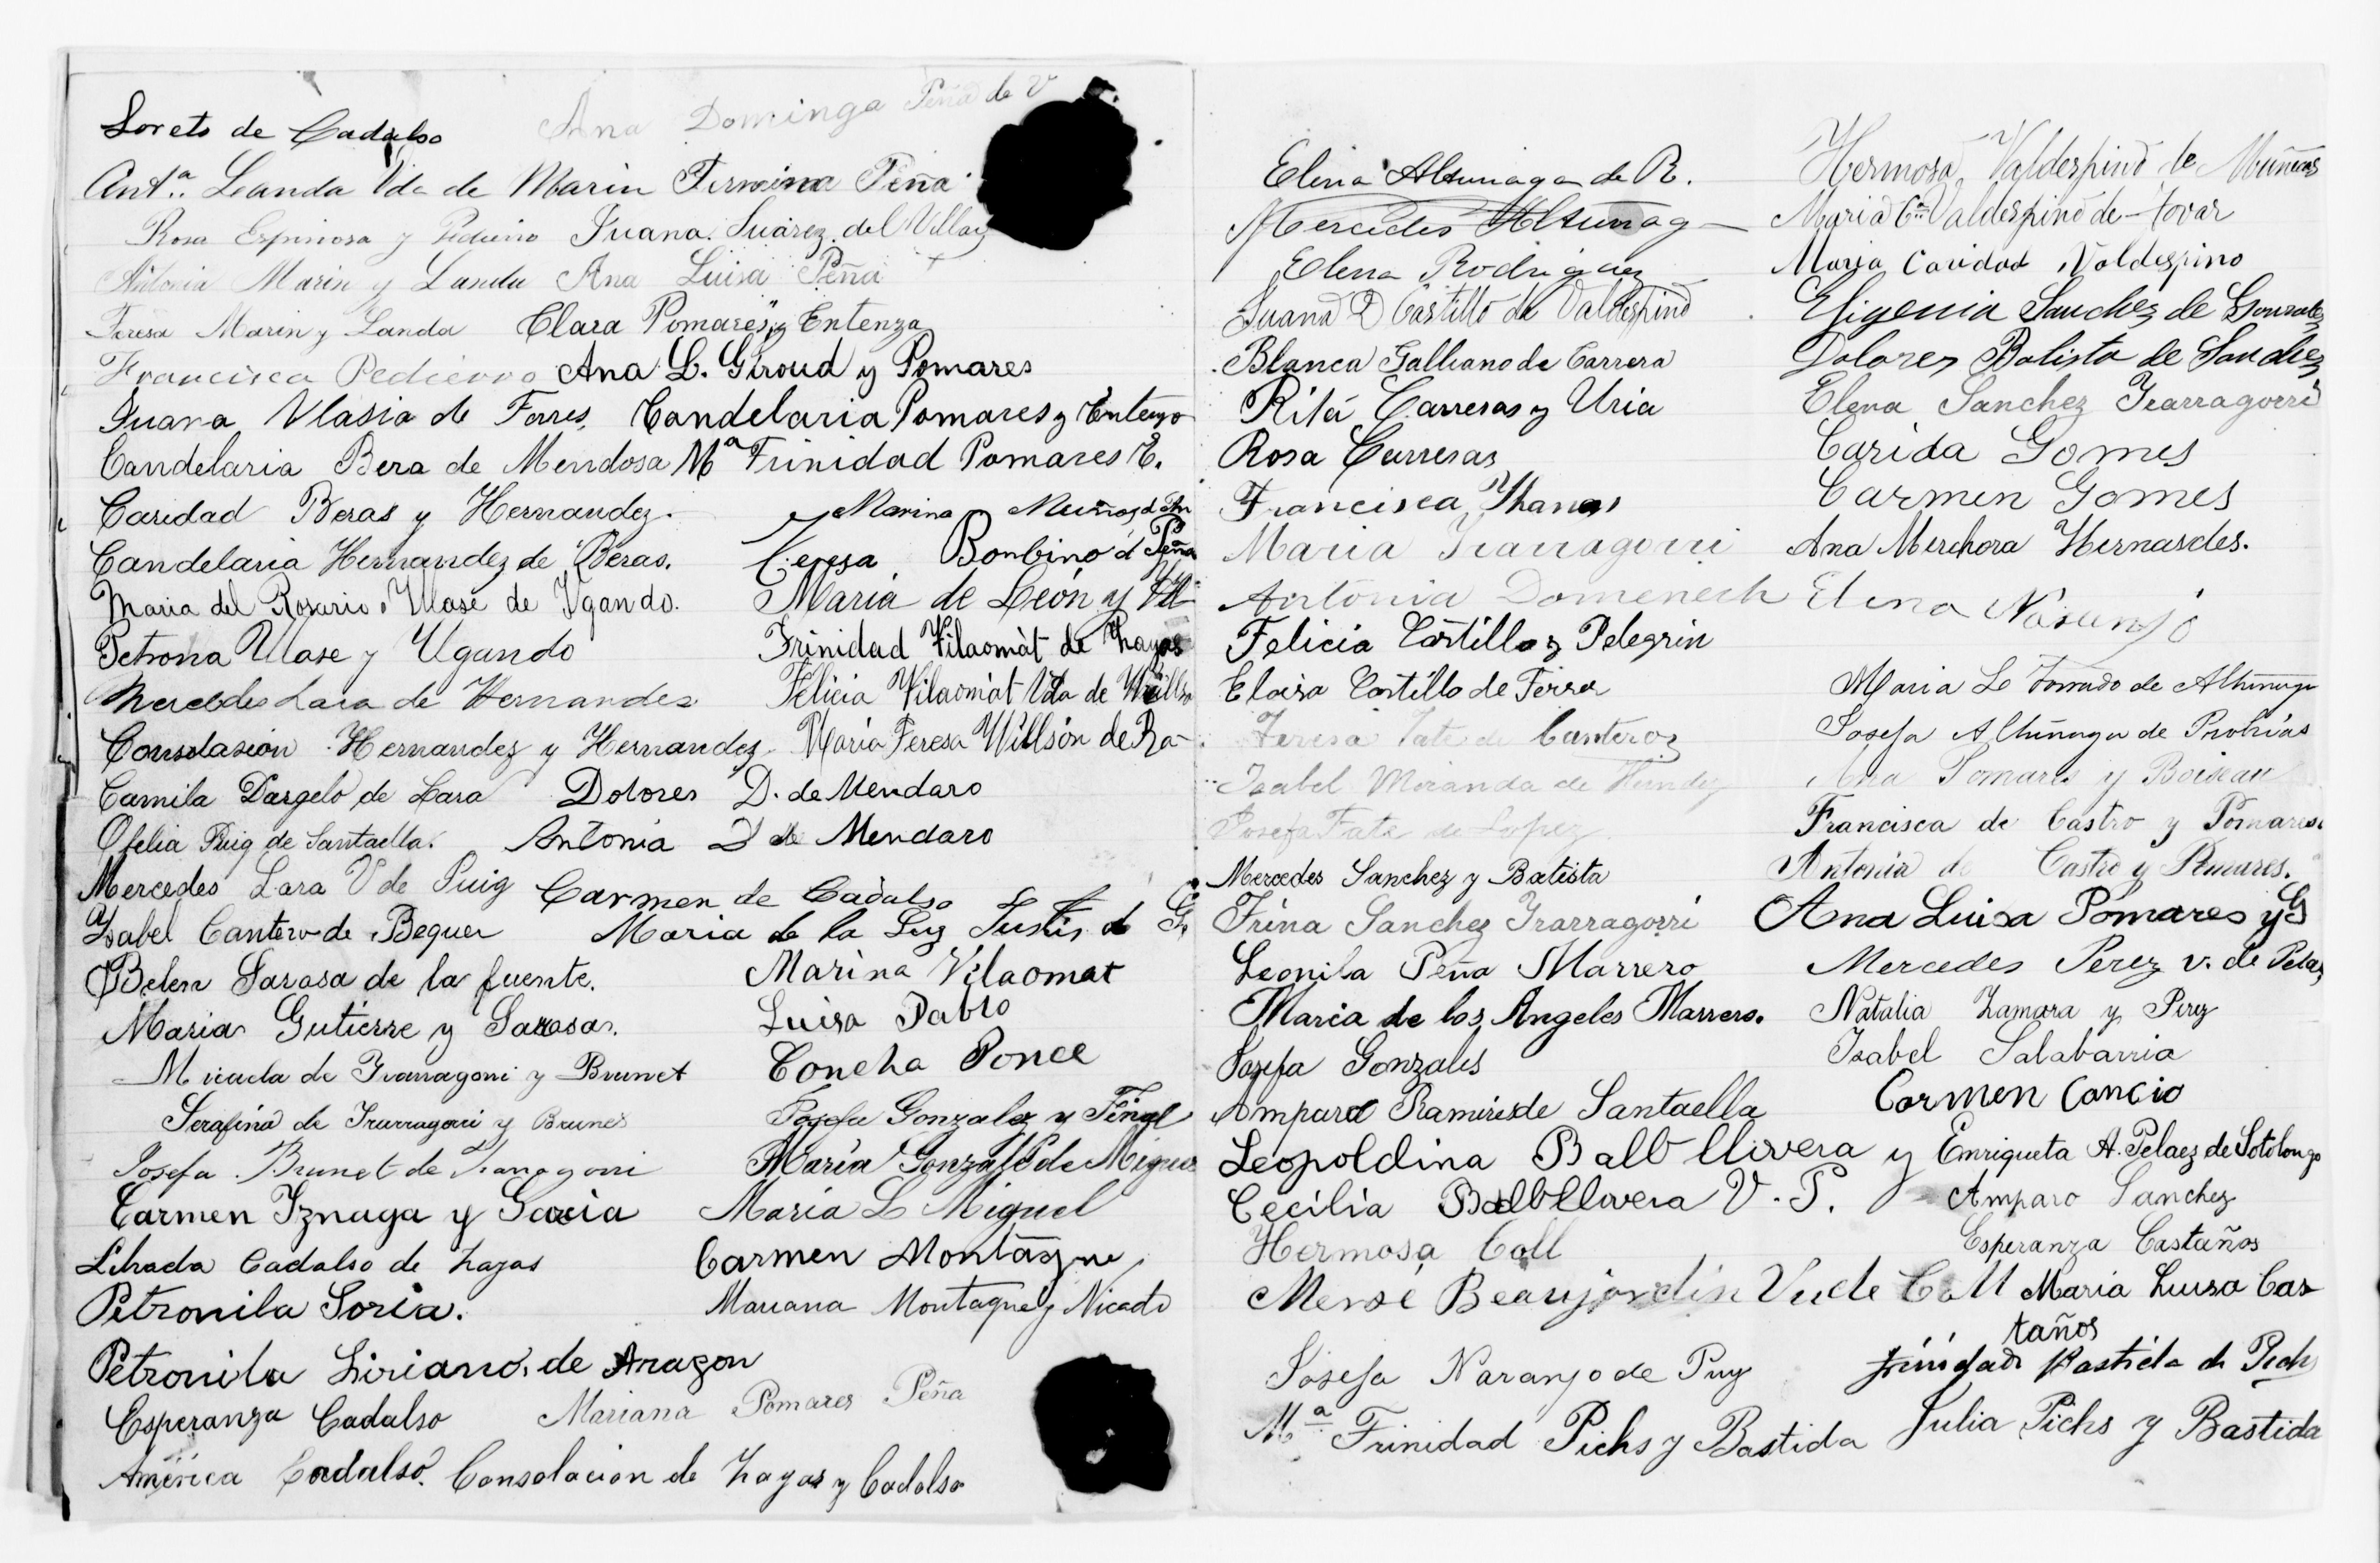 Loreto de Cadalso
Ana Dominga Peña de V
Antª. Landa Vda de Marin
Fermina Peña
Rosa Espinosa y Pedierro
Juana Suárez del Villar
Antonia Marin y Landa
Ana Luisa Peña
Teresa Marin y Landa
Clara Pomares y Entenza
Francisca Pedierro
Ana L. Giroud y Pomares
Juana Vlasia de Torres
Candelaria Pomares y Entenzo
Candelaria Bera de Mendosa
Mª Trinidad Pomares E.
Caridad Beras y Hernandez.
Marina Muñoz d
Candelaria Hernandez de Beras.
Teresa Bonbino d Peña
Maria del Rosario Ulase de Ygando.
María de León y
Petrona Ulase y Ugando
Trinidad Vilaomàt de Zayas
Mercedes Lara de Hernandes
Felicia Vilaomàt Vda de Willson
Consolasion Hernandez y Hernandez
María Teresa Willsón de Ra-
Camila Dargelo de Lara
Dolores D. de Mendaro
Ofelia Puig de Santaella.
Antonia D de Mendaro
Mercedes Lara V de Puig
Carmen de Cadalso
Ysabel Cantero de Bequer
Maria de la Luz Justis de G.
Belen Sarasa de la fuente.
Marina Vilaomat
Maria Gutierre y Sarasa.
Luisa Pablo
Micaela de Irarragorri y Brunet
Concha Ponce
Serafina de Irarragorri y Brunet
Josefa Gonzalez y
Josefa Brunet de Irarragorri
María Gonzales de Miguel
Carmen Iznaga y Garcia
María L Miguel
Librada Cadalso de Zayas
Carmen Montagne
Petronila Soria.
Mariana Montagne y Nicado
Petronila Liriano de Aragon
Esperanza Cadalso
Mariana Pomares Peña
América Cadalso.
Consolacion de Zayas y Cadalso
Elina Altunaga de R.
Mercedes Altunag
Elena Rodriguez
Juana D Castillo de Valdespino
Blanca Galliano de Carrera
Rita Carreras y Uria
Rosa Carreras
Francisca
Maria Irarragorri
Antonia Domenech
Felicia Castillo y Pelegrin
Eloisa Castillo de Ferrer
Teresa Tate de Canteroz
Isabel Miranda de
Josefa Tate de Lopez
Mercedes Sanchez y Batista
Trina Sanchez Irarragorri
Leonila Peña Marrero
Maria de los Angeles Marrero.
Josefa Gonzales
Amparo Ramires de Santaella
Leopoldina Balbllivera y
Cecilia Balbllivera V. P.
Hermosa Coll
Mersé Beaujardin Vude Coll
Josefa Naranjo de Puy
Mª Trinidad Pichs y Bastida
Hermosa Valdespino de Muñeras
Maria Cªⁿ Valdespino de Tovar
Maria Caridad Valdespino
Efigenia Sanchez de Gonzalez
Dolores Batista de Sanchez
Elena Sanchez Irarragorri
Carida Gomes
Carmen Gomes
Ana Merchora Hernasdes.
Elena Naranjo
Maria L Forrado de Altunaga
Josefa Altunaga de Probias
Ana Pomares y Boiseau
Francisca de Castro y Pomares.
Antonia de Castro y Pomares.
Ana Luisa Pomares y G
Mercedes Perez v. de Pelaz
Natalia Zamora y Perez
Isabel Salabarria
Carmen Cancio
Enriqueta A. Pelaez de Sotolongo
Amparo Sanchez
Esperanza Castaños
Maria Luisa Cas-
taños
Trinidad Bastida de Pichs
Julia Pichs y Bastida